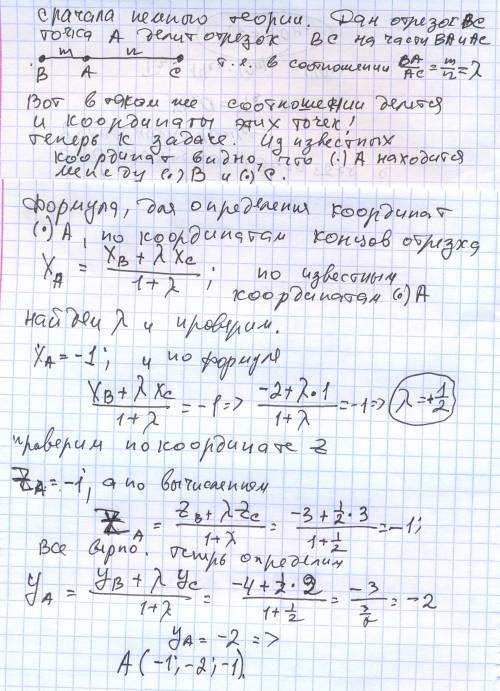 сначала немного теории. Дан отрезок BC
точка A делит отрезок BC на части BA и AC
m n т.е. в соотношении BA/AC = m/n = λ
B A C
Вот в таком же соотношении делится
и координаты этих точек!
теперь к задаче. Из известных
координат видно, что (·) A находится
между (·) B и (·) C.
формула, для определения координат
(·) A, по координатам концов отрезка
X_A = (X_B + λ X_C)/(1 + λ) ; по известным
координатам (·) A
найдем λ и проверим.
X_A = -1 ; и по формуле
(X_B + λ X_C)/(1 + λ) = -1 => (-2 + λ·1)/(1 + λ) = -1 => λ = +1/2
проверим по координате z
Z_A = -1, а по вычислениям
Z_A = (Z_B + λ Z_C)/(1 + λ) = (-3 + 1/2 · 3)/(1 + 1/2) = -1;
Все верно. теперь определим
y_A = (y_B + λ y_C)/(1 + λ) = (-4 + 1/2 · 2)/(1 + 1/2) = -3/(3/2) = -2
y_A = -2 =>
A (-1; -2; -1).